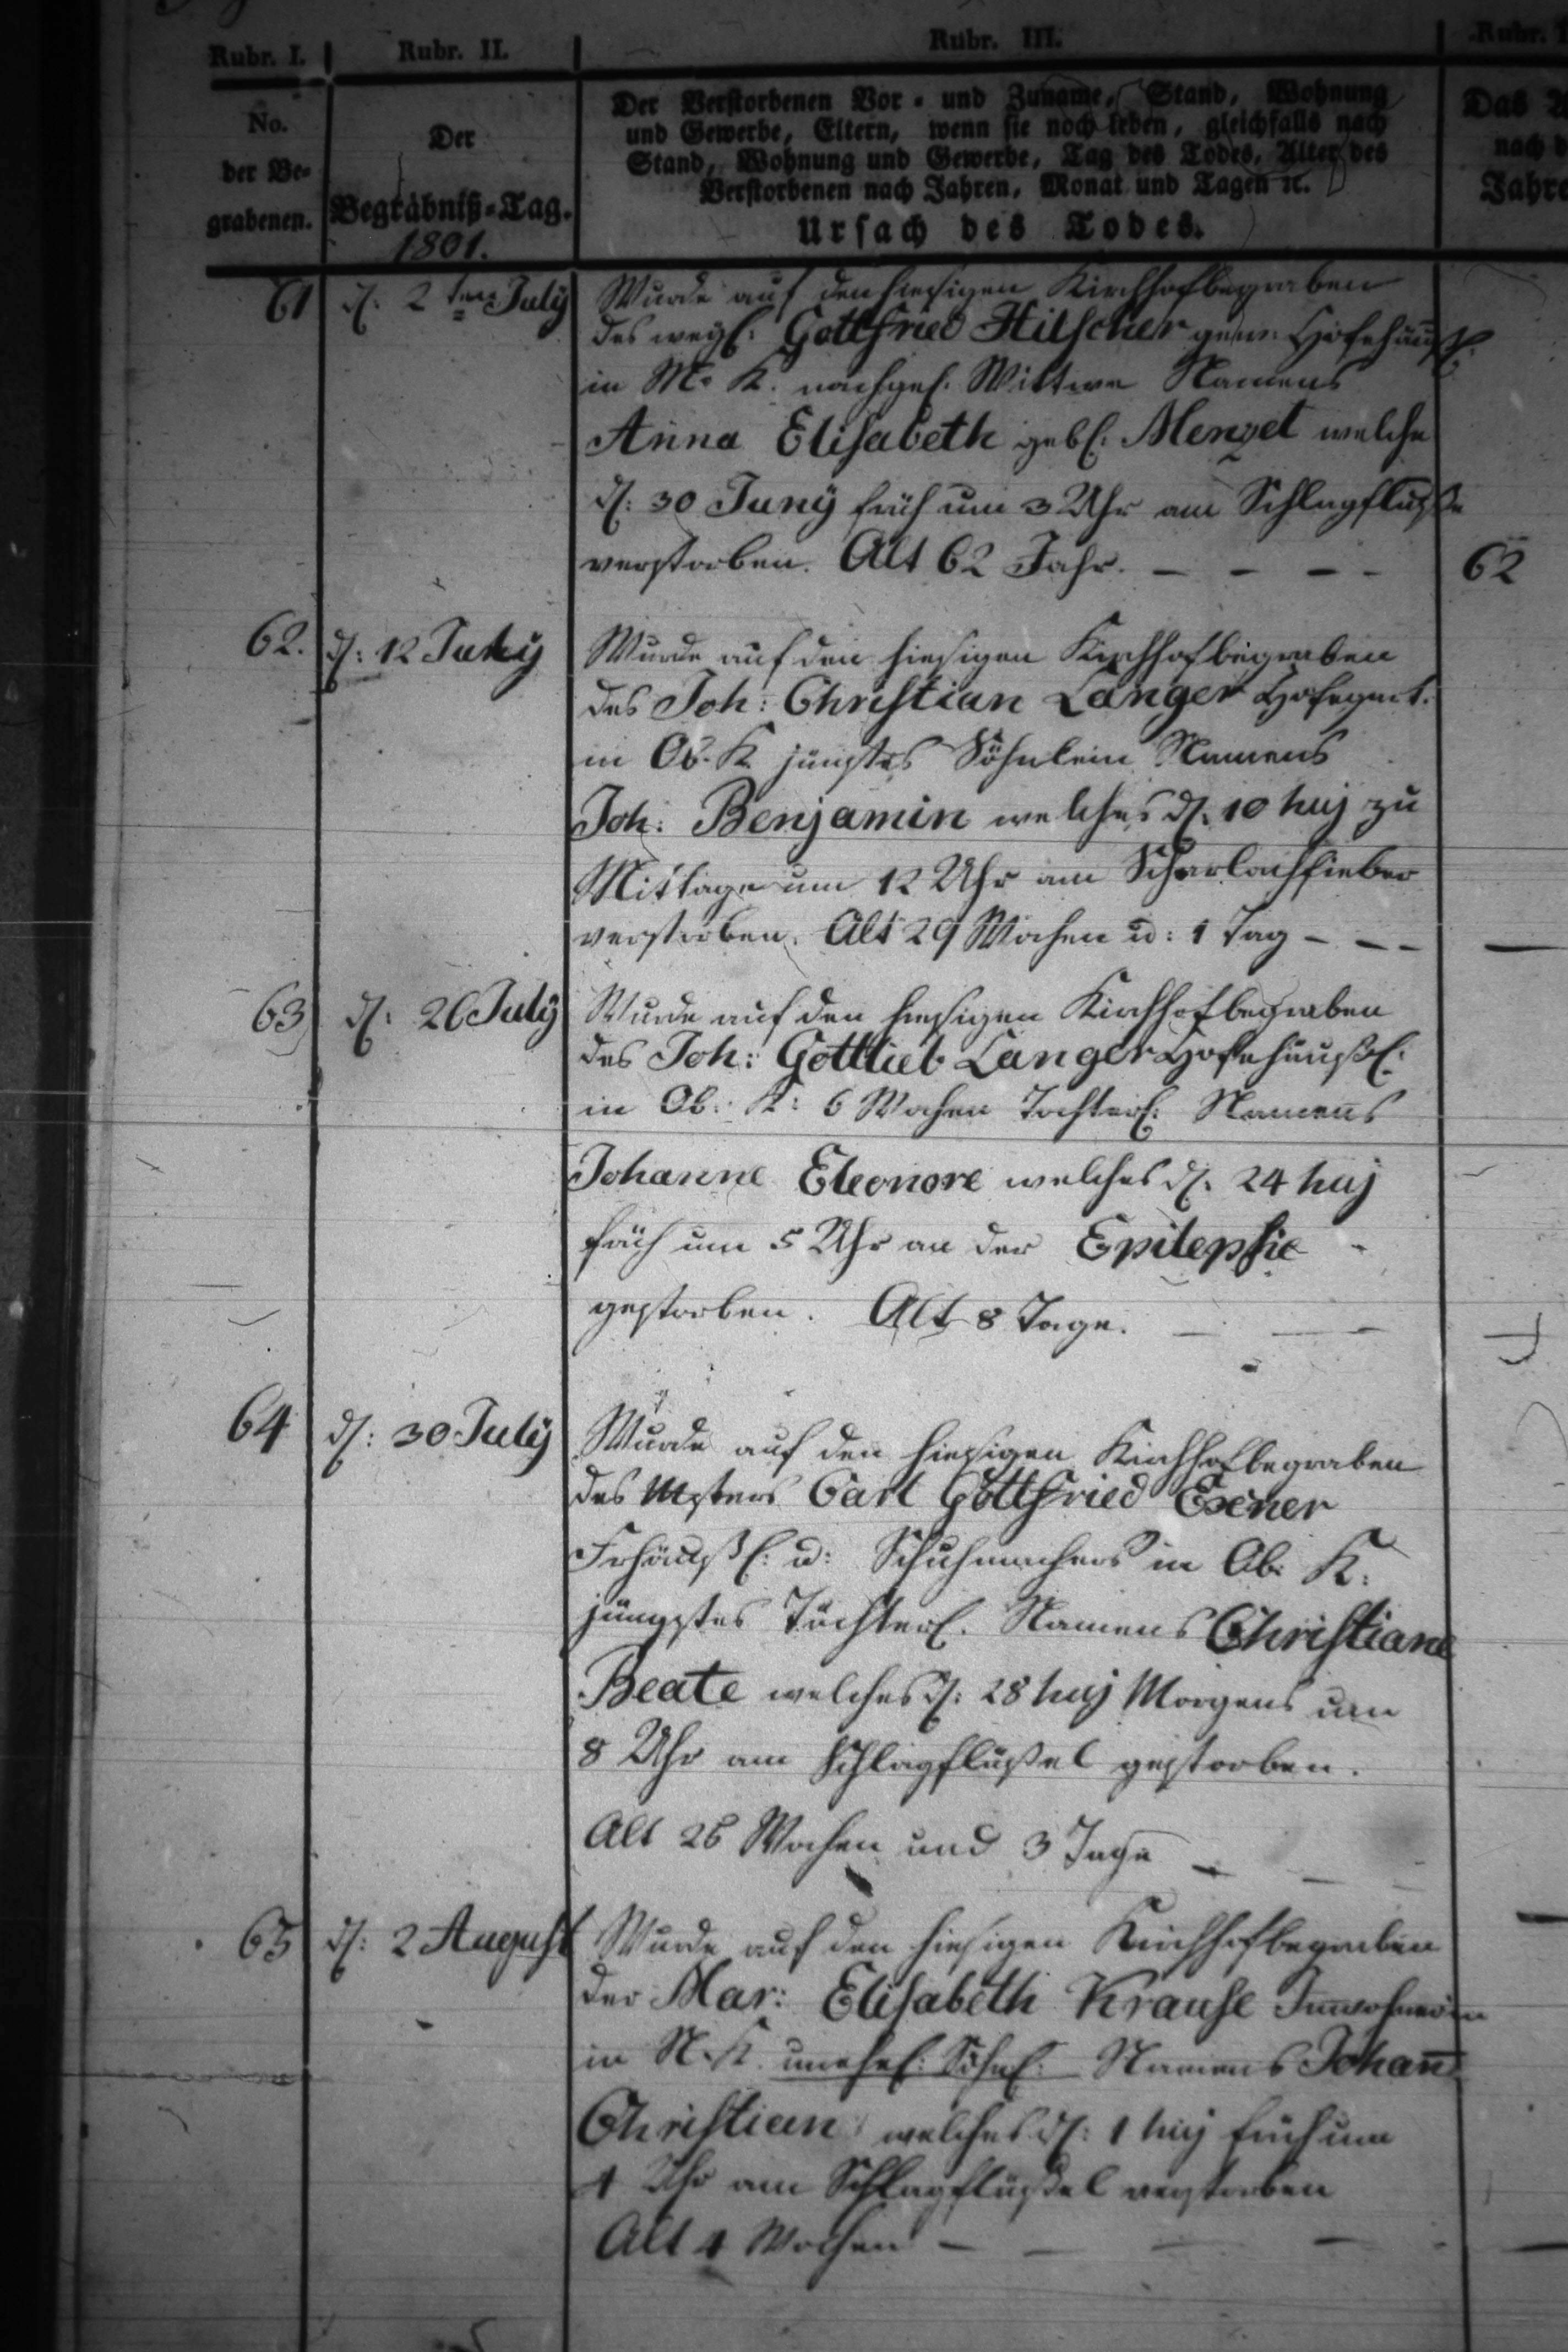 Rubr. I.
Rubr. II.
Rubr. III.
No.
der Be-
grabenen.
Der
Begräbniß-Tag.
1801.
Der Verstorbenen Vor- und Zuname, Stand, Wohnung
und Gewerbe, Eltern, wenn sie noch leben, gleichfalls nach
Stand, Wohnung und Gewerbe, Tag des Todes, Alter des
Verstorbenen nach Jahren, Monat und Tagen ꝛc.
Ursach des Todes.
61 d: 2ten July Wurde auf den hiesigen Kirchhof begraben
des weyl: Gottfried Hilscher gew: Hofehäußl:
in M. K. nachgel. Wittwe Namens
Anna Elisabeth gebl: Menzel welche
d: 30 Juny früh um 3 Uhr am Schlagfluße
verstorben. Alt 62 Jahr. – – – – 62
62. d: 12 July Wurde auf den hiesigen Kirchhof begraben
des Joh: Christian Langer Hofegärt.
in Ob. K. jüngstes Söhnlein Namens
Joh: Benjamin welches d. 10 huj zu
Mittage um 12 Uhr am Scharlachfieber
verstorben. Alt 29 Wochen u: 1 Tag – – –
63 d: 26 July Wurde auf den hiesigen Kirchhof begraben
des Joh: Gottlieb Langer Hofehäußl:
in Ob: K: 6 Wochen Töchterl: Namens
Johanne Eleonore welches d. 24 huj
früh um 5 Uhr an der Epilepsie
gestorben. Alt 8 Tage. – –
64 d: 30 July Wurde auf den hiesigen Kirchhof begraben
des Msters Carl Gottfried Exner
Frhäußl: u: Schuhmachers in Ob. K.
jüngstes Töchterl. Namens Christiane
Beate welches d: 28 huj Morgens um
8 Uhr am Schlagflüßel gestorben.
Alt 26 Wochen und 3 Tage –
65 d: 2 August Wurde auf den hiesigen Kirchhof begraben
der Mar: Elisabeth Krause Innwohnerin
in N. K. unehel: Söhnl: Namens Johann
Christian welches d: 1 huj früh um
4 Uhr am Schlagflüßel verstorben
Alt 4 Wochen – – – –